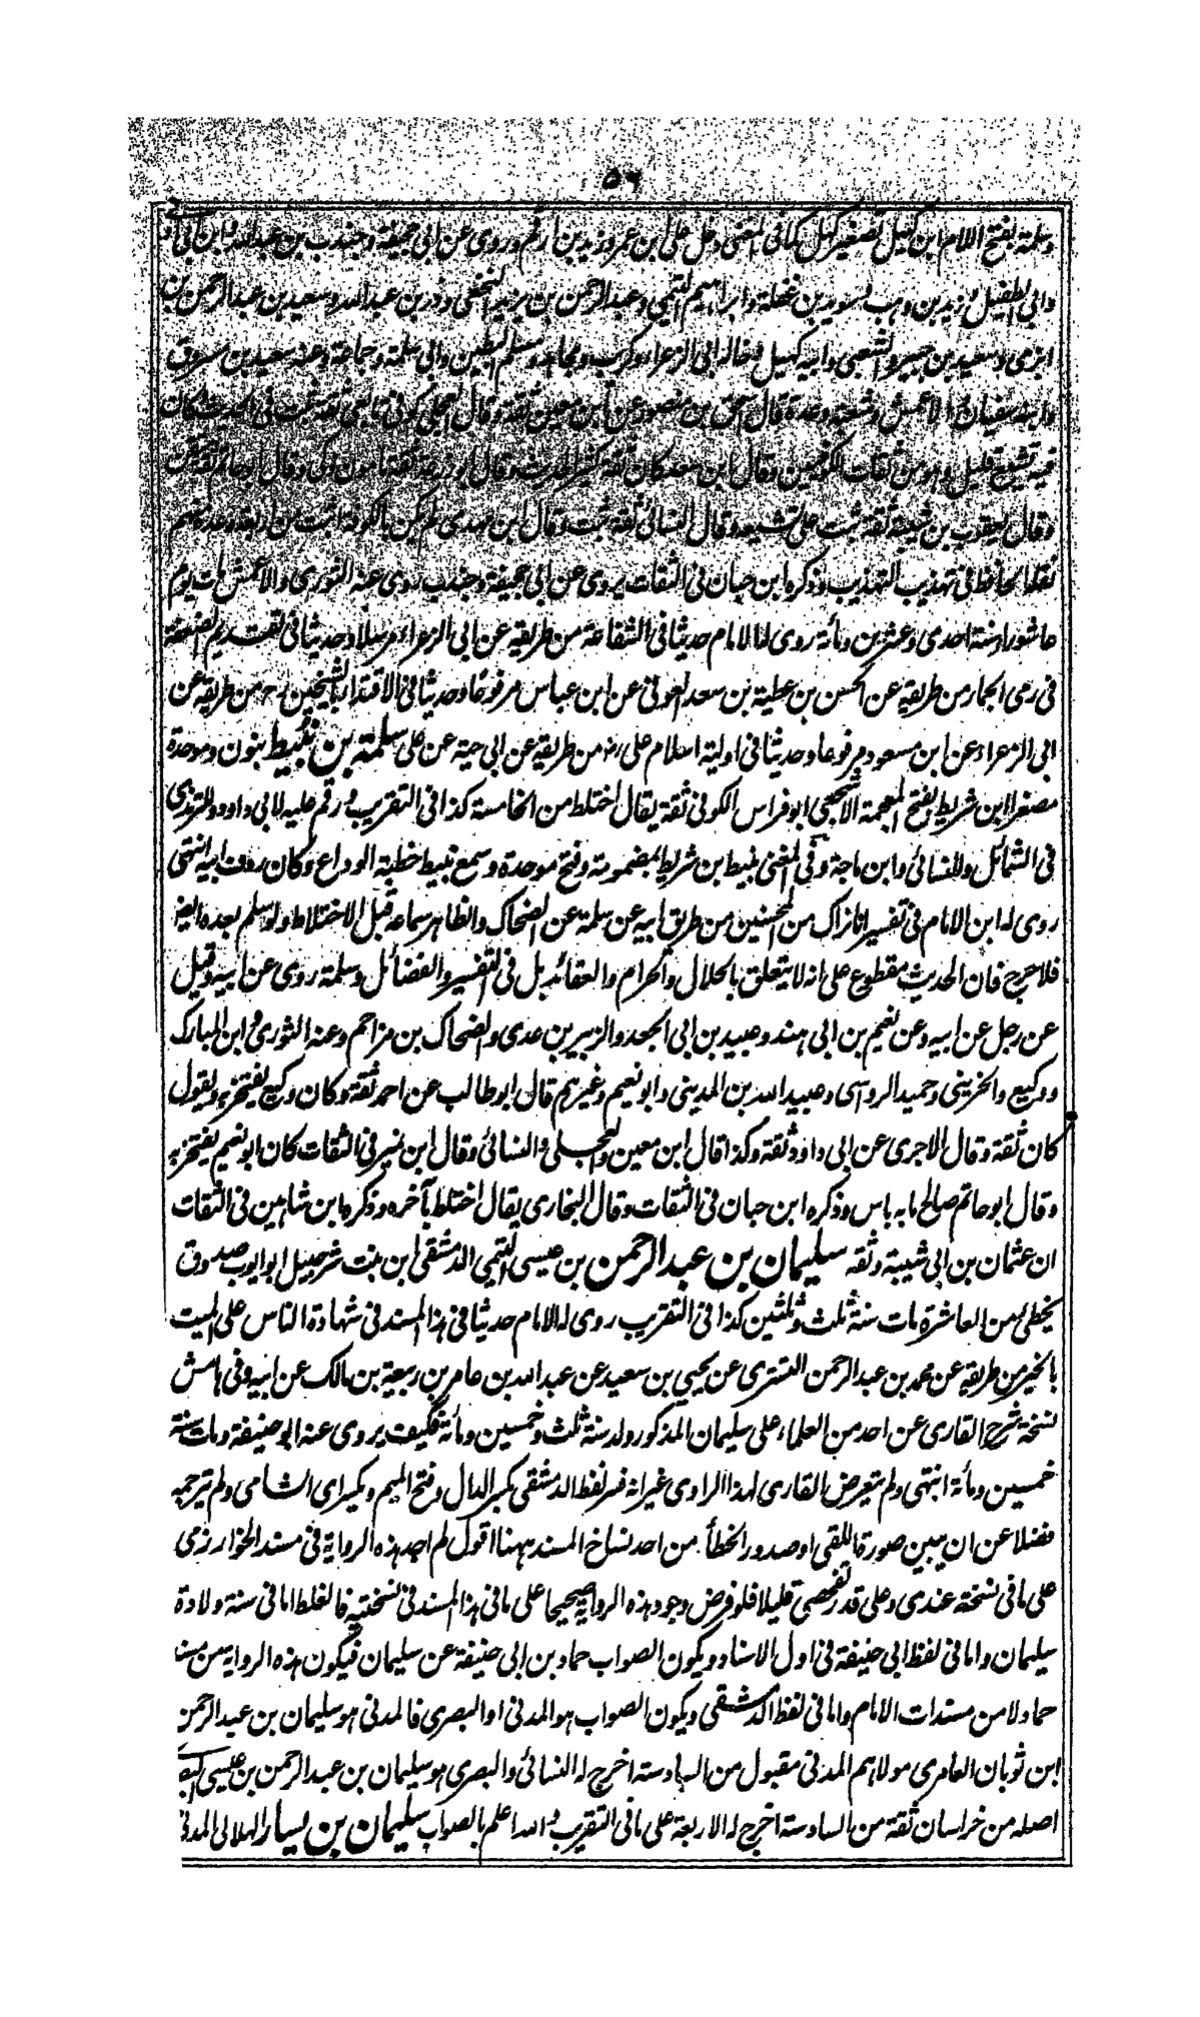 ٥٦
وسلمة بفتح اللام ابن كهيل تصغير كهل كما في المغنى دخل على ابن عمر وزيد بن ارقم وروى عن ابى جحيفة وجندب بن عبد الله وابن ابى اوفى
وابى الطفيل وزيد بن وهب وسويد بن غفلة وابراهيم التيمى وعبد الرحمن بن يزيد النخعى وذر بن عبد الله وسعيد بن عبد الرحمن بن
ابزى وسعيد بن جبير والشعبى وابيه كهيل وخاله ابى الزعراء وكريب ومجاهد ومسلم البطين وابى سلمة وجماعة وعنه سعيد بن مسروق
وابنه سفيان والاعمش وشعبة وعدة قال اسحق بن منصور عن ابن معين ثقة وقال العجلى كوفى تابعى ثقة ثبت فى الحديث كان
فيه تشيع قليل وهو من ثقات الكوفيين وقال ابن سعد كان ثقة كثير الحديث وقال ابو زرعة ثقة مامون ذكى وقال ابو حاتم ثقة متقن
وقال يعقوب بن شيبة ثقة ثبت على تشيعه وقال النسائى ثقة ثبت وقال ابن مهدى لم يكن بالكوفة اثبت من اربعة وعده منهم
نقله الحافظ فى تهذيب التهذيب وذكره ابن حبان فى الثقات يروى عن ابى جحيفة وجندب روى عنه الثورى والاعمش مات يوم
عاشوراء سنة احدى وعشرين ومأة روى لنا الامام حديثا فى الشفاعة من طريقه عن ابى الزعراء مرسلا وحديثا فى تقديم الضعفة
فى رمى الجمار من طريقه عن الحسن بن عطية بن سعد العوفى عن ابن عباس مرفوعا وحديثا فى الاقتداء بالشيخين رح من طريقه عن
ابى الزعراء عن ابن مسعود مرفوعا وحديثا فى اولية اسلام على رض من طريقه عن ابى حية عن على سلمة بن نبيط بنون وموحدة
مصغرا ابن شريط بفتح المعجمة الاشجعى ابو فراس الكوفى ثقة يقال اختلط من الخامسة كذا فى التقريب ورقم عليه لابى داود والترمذى
فى الشمائل والنسائى وابن ماجة وفى المغنى نبيط ابن شريط بمضمومة وفتح موحدة وسمع نبيط خطبة الوداع وكان ردف ابيه انتهى
روى له ابن الامام فى تفسير انا نراك من المحسنين من طريق ابيه عن سلمة عن الضحاك والظاهر سماعه قبل الاختلاط ولو سلم بعده ايضا
فلا حرج فان الحديث مقطوع على انه لا يتعلق بالحلال والحرام والعقائد بل فى التفسير والفضائل وسلمة روى عن ابيه وقيل
عن رجل عن ابيه وعن نعيم بن ابى هند وعبيد بن ابى الجعد والزبير بن عدى والضحاك بن مزاحم وعنه الثورى وابن المبارك
ووكيع والخريبى وحميد الرواسى وعبيد الله بن المدينى وابو نعيم وغيرهم قال ابو طالب عن احمد ثقة وكان وكيع يفتخر به ويقول
كان ثقة وقال الاجرى عن ابى داود ثقة وكذا قال ابن معين والعجلى والنسائى وقال ابن نمير فى الثقات كان ابو نعيم يفتخر به
وقال ابو حاتم صالح ما به باس وذكره ابن حبان فى الثقات وقال البخارى يقال اختلط بآخره وذكره ابن شاهين فى الثقات
ان عثمان بن ابى شيبة وثقه سليمان بن عبد الرحمن بن عيسى التيمى الدمشقى ابن بنت شرحبيل ابو ايوب صدوق
يخطى من العاشرة مات سنة ثلث وثلثين كذا فى التقريب روى له الامام حديثا فى هذا المسند فى شهادة الناس على الميت
بالخير من طريقه عن محمد بن عبد الرحمن التسترى عن يحيى بن سعيد عن عبد الله بن عامر بن ربيعة بن مالك عن ابيه وفى هامش
نسخة شرح القارى عن احد من العلماء على سليمان المذكور ولد سنة ثلث وخمسين ومأة فكيف يروى عنه ابو حنيفة ومات سنة
خمسين ومأة انتهى ولم يتعرض القارى لهذا الراوى غير انه فسر لفظ الدمشقى بكسر الدال وفتح الميم وبكسر اى الشامى ولم يترجمه
فضلا عن ان يبين صورة اللقى او صدور الخطأ من احد نساخ المسند ههنا اقول لم اجد هذه الرواية فى مسند الخوارزمى
على ما فى نسخته عندى وعلى قدر تفحصى قليلا فلو فرض وجود هذه الرواية صحيحا على ما فى هذا المسند فى نسختيه فالغلط اما فى سنة ولادة
سليمان واما فى لفظ ابى حنيفة فى اول الاسناد ويكون الصواب حماد بن ابى حنيفة عن سليمان فيكون هذه الرواية من مسند
حماد لا من مسندات الامام واما فى لفظ الدمشقى ويكون الصواب هو المدنى او البصرى فالمدنى هو سليمان بن عبد الرحمن
ابن ثوبان العامرى مولاهم المدنى مقبول من السادسة اخرج له النسائى والبصرى هو سليمان بن عبد الرحمن بن عيسى البصرى
اصله من خراسان ثقة من السادسة اخرج له الاربعة على ما فى التقريب والله اعلم بالصواب سليمان بن يسار الهلالى المدنى